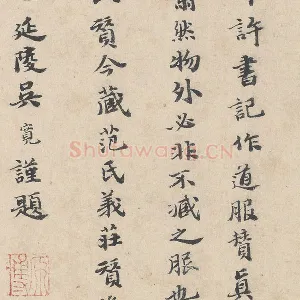 許書記作道服賛真
然物外必非不臧之服也
賛今藏范氏義荘賛
延陵吳寬謹題
Shufawang.CN